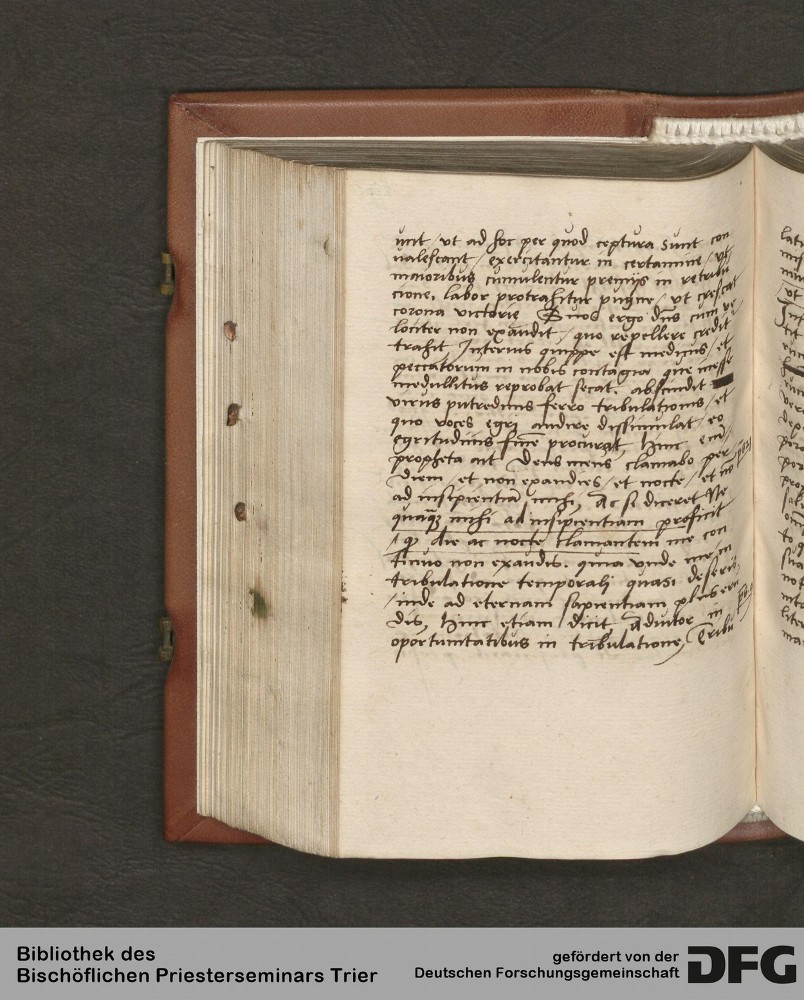 unt / ut ad hoc per quod ceptura sunt con
ualescant / exercitantur in certamine / ut
maioribus cumulentur premijs in retribu
cione, labor protrahitur pugne / ut crescat
corona victorie Suos ergo dns cum ve
lociter non exaudit / quo repellere credit
trahit Interius quippe est medicus / et
peccatorum in nobis contagia que inesse
medullitus reprobat secat abscindit
virus putredinis ferro tribulationis / et
quo voces egri audire dissimulat / eo
egritudinis finē procurat, Hinc enī
propheta ait Deus meus clamabo per
diem / et non exaudies / et nocte / et nō
ad insipientiā mihi, Ac si diceret Ne
quaqȝ mihi ad insipientiam proficit
/ qȝ die ac nocte clamantem me con
tinuo non exaudis. quia unde me in
tribulatione temporali quasi deseris
/ inde ad eternam sapientiam plus eru
dis, Hinc etiam dicit Adiutor in
oportunitatibus in tribulatione, Tribu
Bibliothek des
Bischöflichen Priesterseminars Trier
gefördert von der
Deutschen Forschungsgemeinschaft
DFG